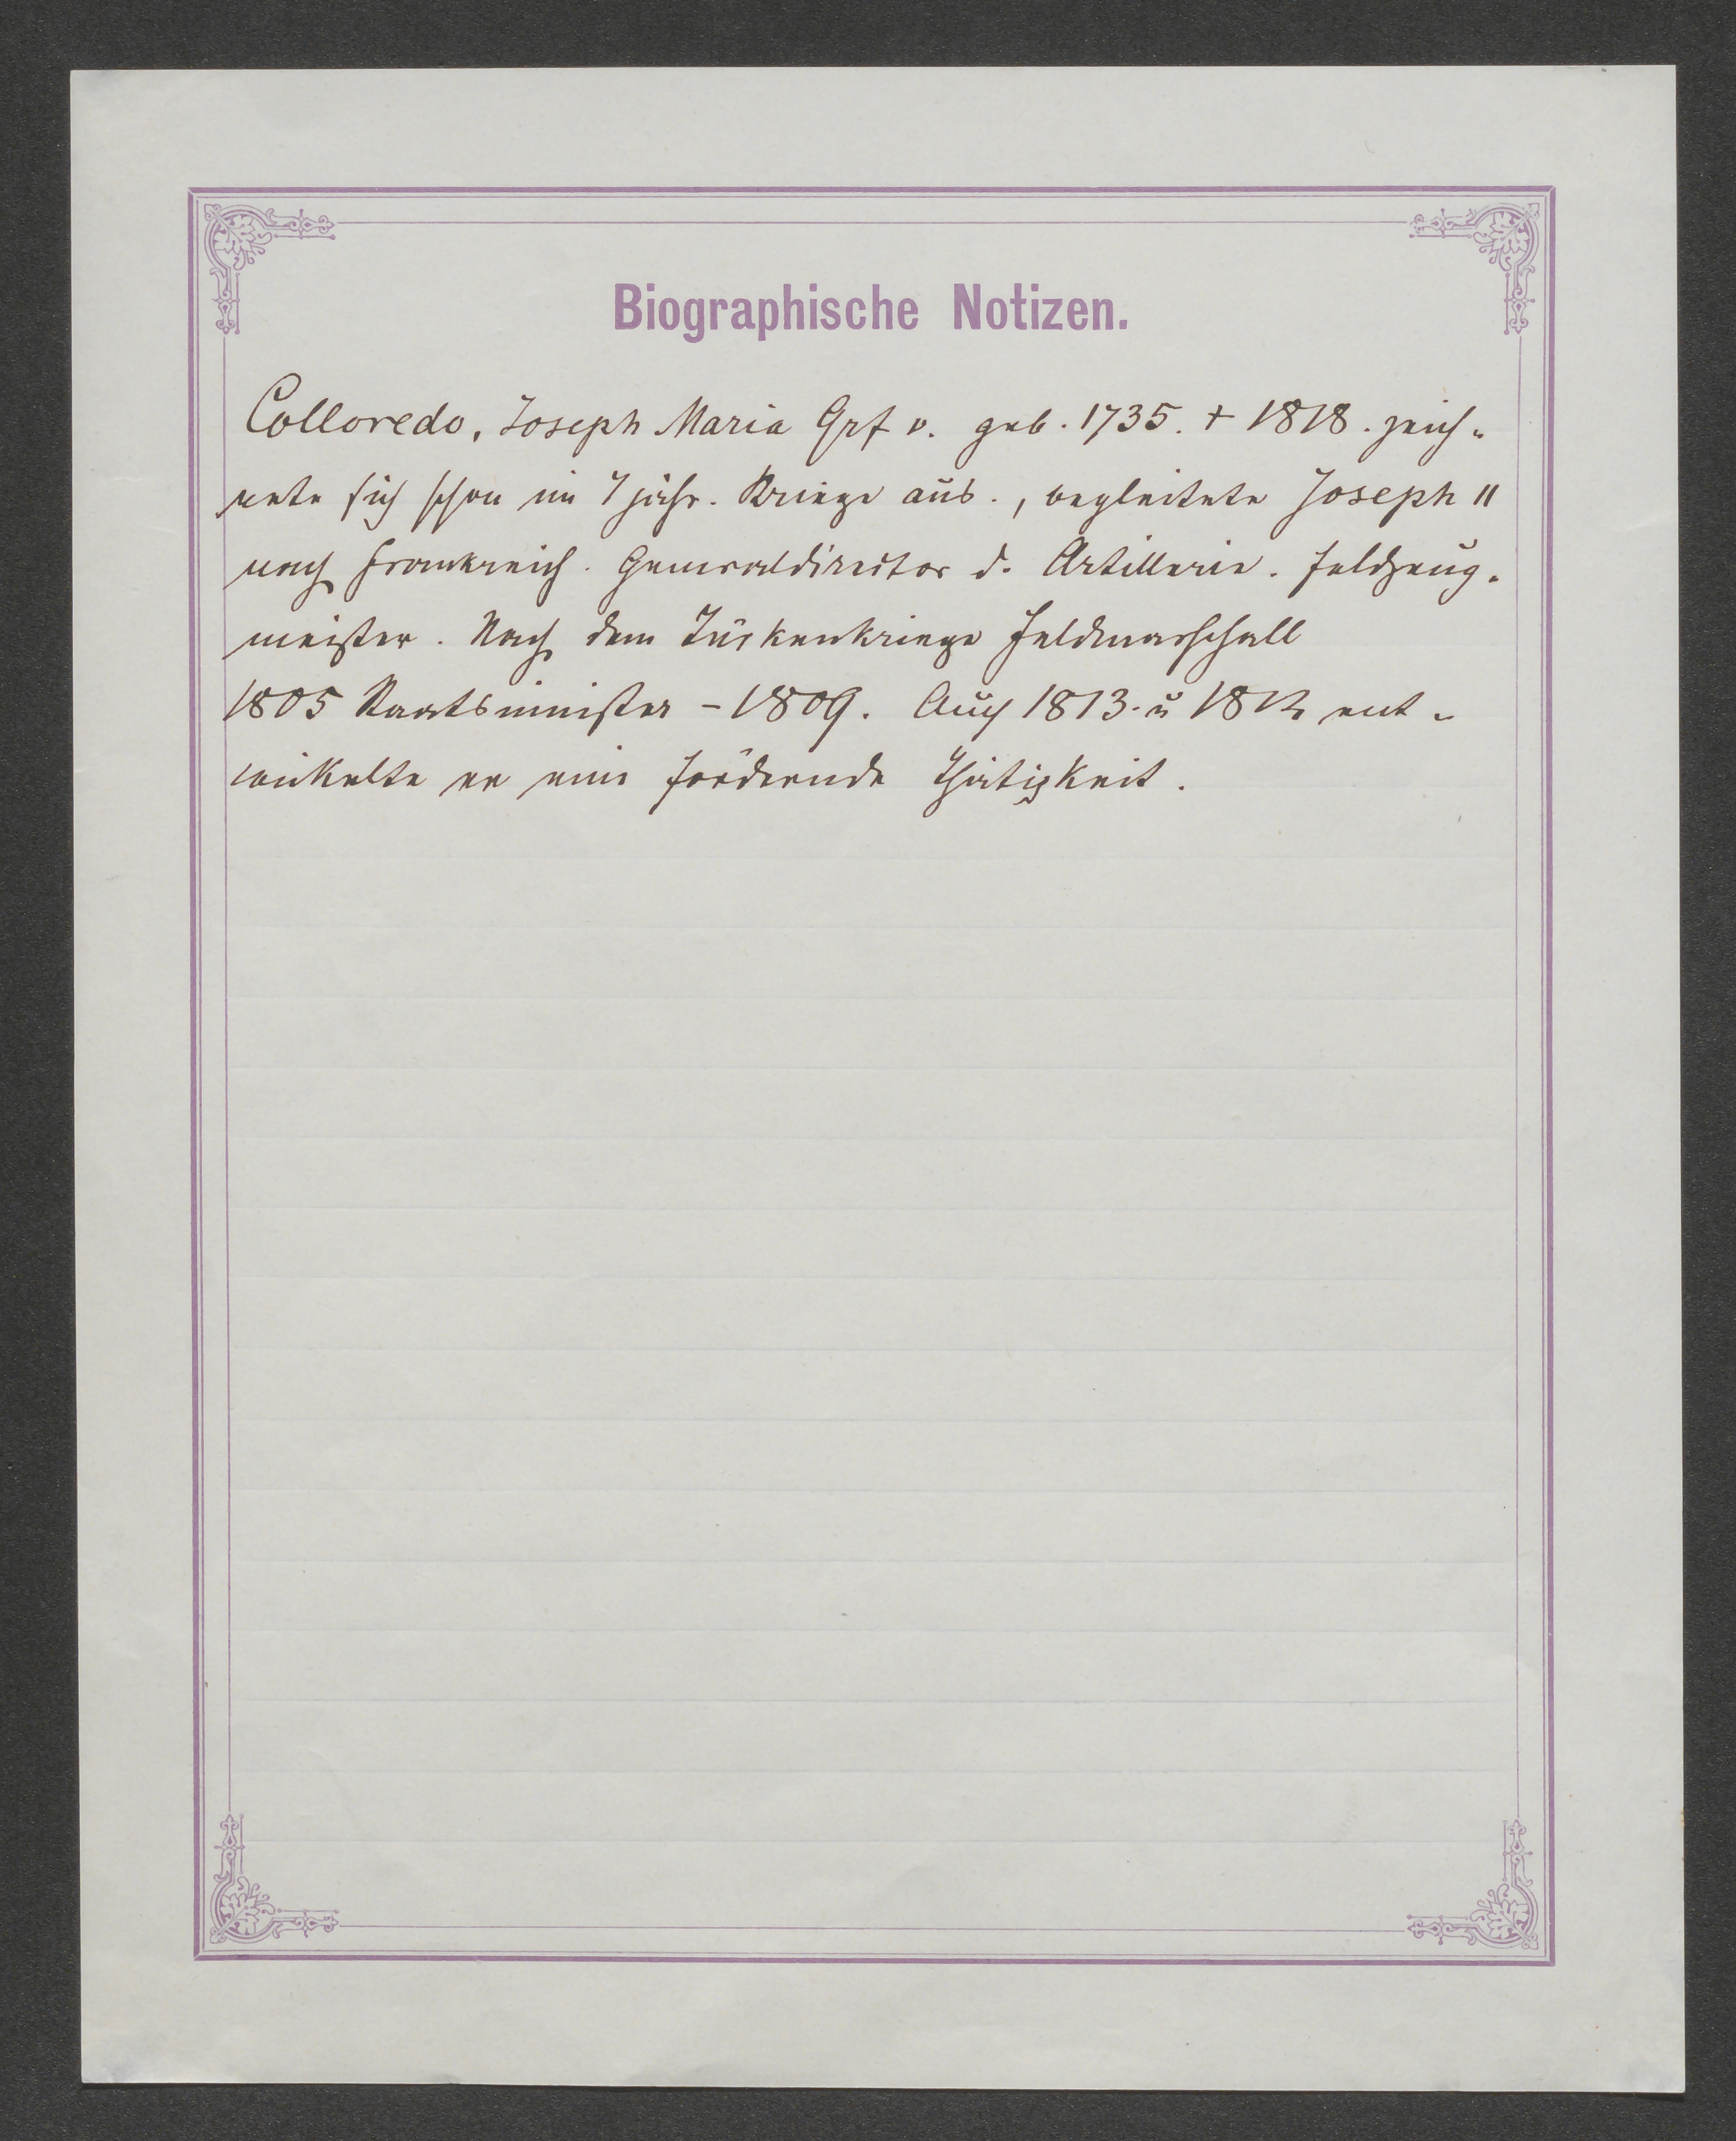 Biographische Notizen.
Colloredo, Joseph Maria Grf v. geb. 1735. + 1818. zeich-
nete sich schon im 7 jähr. Kriege aus., begleitete Joseph II
nach Frankreich. Generaldirector d. Artillerie. Feldzeug-
meister. Nach dem Türkenkriege Feldmarschall
1805 Staatsminister - 1809. Auch 1813. u ent-
wickelte er eine fördernde Thätigkeit.